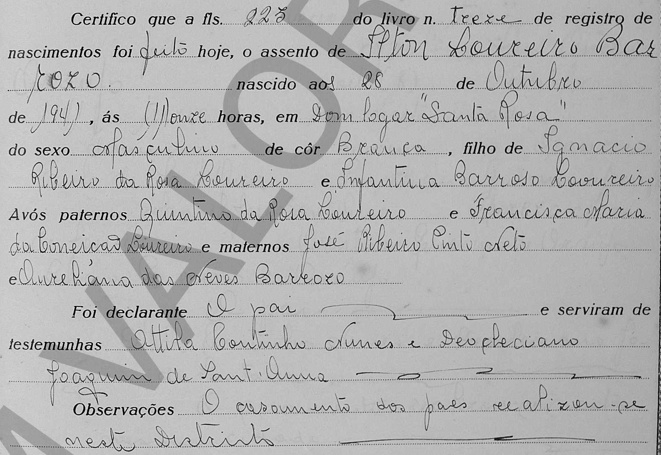 Certifico que a fls. 223 do livro n. treze de registro de
nascimentos foi feito hoje, o assento de Ilton Loureiro Bar
rozo. nascido aos 28 de Outubro
de 1941, ás (11) onze horas, em Dom logar "Santa Rosa"
do sexo Masculino de côr Branca, filho de Ignacio
Ribeiro da Rosa Loureiro e Infantina Barroso Loureiro
Avós paternos Quintino da Rosa Loureiro e Francisca Maria
da Conceição Loureiro e maternos José Ribeiro Pinto Neto
e Aureliana das Neves Barrozo
Foi declarante O pai e serviram de
testemunhas Attila Coutinho Nunes e Deocleciano
Joaquim de Sant'Anna
Observações O casamento dos paes realizou-se
neste Districto
VALOR